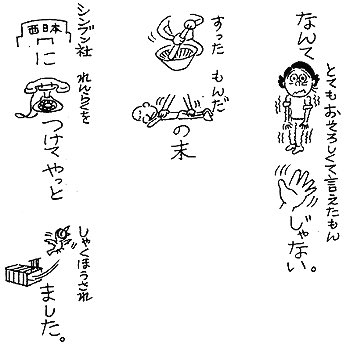 なんて
とてもおそろしくて言えたもん
じゃない。
すった
もんだ
の末
西日本
シンブン社
に
れんらくを
つけてやっと
しゃくほうされ
ました。